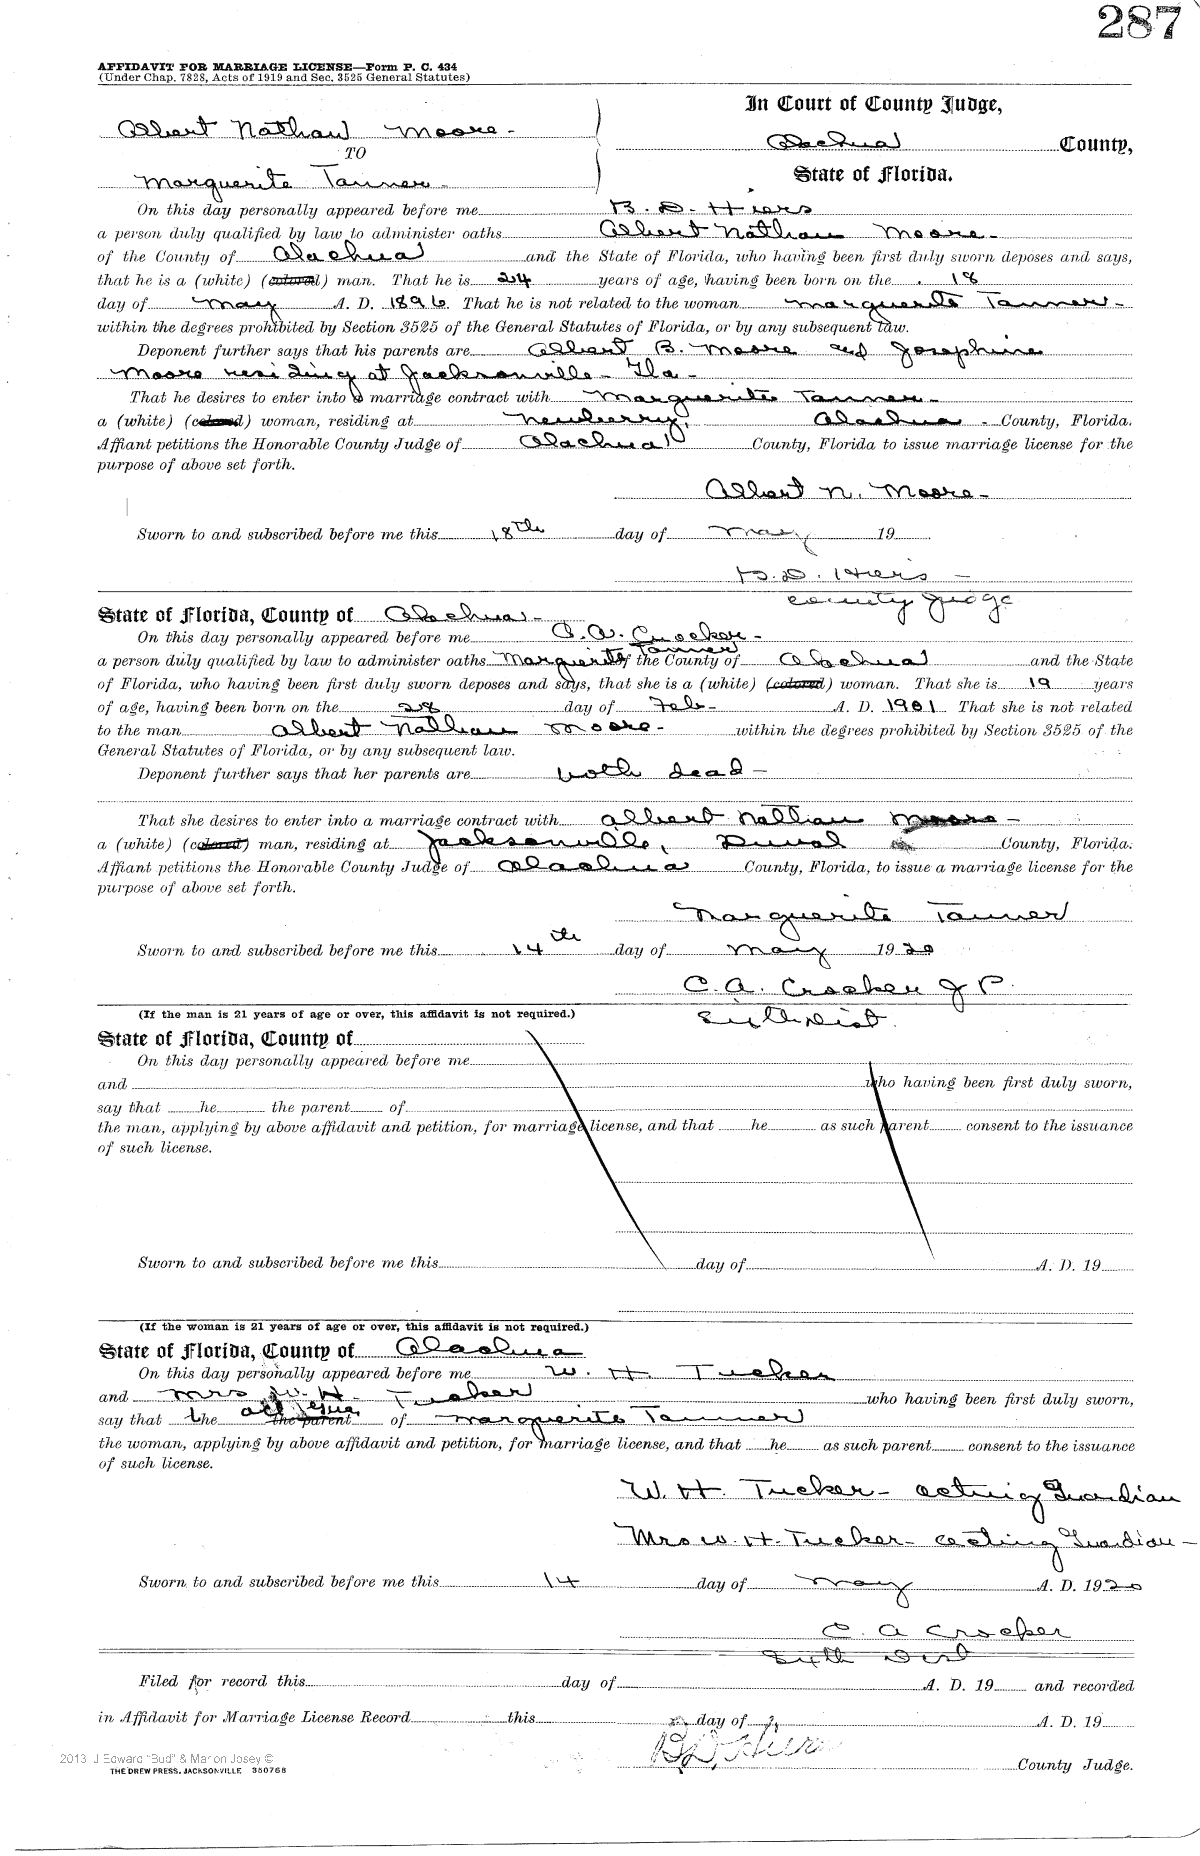 287
AFFIDAVIT FOR MARRIAGE LICENSE—Form P. C. 434
(Under Chap. 7828, Acts of 1919 and Sec. 3525 General Statutes)
Albert Nathan Moore-
TO
Marguerite Tanner-
In Court of County Judge,
Alachua County,
State of Florida.
On this day personally appeared before me B. D. Hiers
a person duly qualified by law to administer oaths Albert Nathan Moore-
of the County of Alachua and the State of Florida, who having been first duly sworn deposes and says,
that he is a (white) (colored) man. That he is 24 years of age, having been born on the 18
day of May A. D. 1896. That he is not related to the woman Marguerite Tanner-
within the degrees prohibited by Section 3525 of the General Statutes of Florida, or by any subsequent law.
Deponent further says that his parents are Albert B. Moore and Josephine
Moore residing at Jacksonville- Fla-
That he desires to enter into a marriage contract with Marguerite Tanner-
a (white) (colored) woman, residing at Newberry, Alachua - County, Florida.
Affiant petitions the Honorable County Judge of Alachua County, Florida to issue marriage license for the
purpose of above set forth.
Albert N. Moore-
Sworn to and subscribed before me this 18th day of May 19
B. D. Hiers -
County Judge
State of Florida, County of Alachua-
On this day personally appeared before me C. A. Crocker-
a person duly qualified by law to administer oaths Marguerite Tanner of the County of Alachua and the State
of Florida, who having been first duly sworn deposes and says, that she is a (white) (colored) woman. That she is 19 years
of age, having been born on the 28 day of Feb- A. D. 1901 That she is not related
to the man Albert Nathan Moore- within the degrees prohibited by Section 3525 of the
General Statutes of Florida, or by any subsequent law.
Deponent further says that her parents are both dead-
That she desires to enter into a marriage contract with Albert Nathan Moore-
a (white) (colored) man, residing at Jacksonville, Duval County, Florida.
Affiant petitions the Honorable County Judge of Alachua County, Florida, to issue a marriage license for the
purpose of above set forth.
Marguerite Tanner
Sworn to and subscribed before me this 14th day of May 1920
C. A. Crocker J P.
Sixth Dist.
(If the man is 21 years of age or over, this affidavit is not required.)
State of Florida, County of
On this day personally appeared before me
and who having been first duly sworn,
say that he the parent of
the man, applying by above affidavit and petition, for marriage license, and that he as such parent consent to the issuance
of such license.
Sworn to and subscribed before me this day of A. D. 19
(If the woman is 21 years of age or over, this affidavit is not required.)
State of Florida, County of Alachua
On this day personally appeared before me W. H. Tucker
and Mrs W. H. Tucker who having been first duly sworn,
say that the the parent of Marguerite Tanner
the woman, applying by above affidavit and petition, for marriage license, and that he as such parent consent to the issuance
of such license.
W. H. Tucker- acting Guardian
Mrs W. H. Tucker- acting Guardian-
Sworn to and subscribed before me this 14 day of May A. D. 1920
C. A Crocker
Sixth Dist
Filed for record this day of A. D. 19 and recorded
in Affidavit for Marriage License Record this day of A. D. 19
B D Hiers
County Judge.
2013 J Edward "Bud" & Marion Josey ©
THE DREW PRESS, JACKSONVILLE 350768